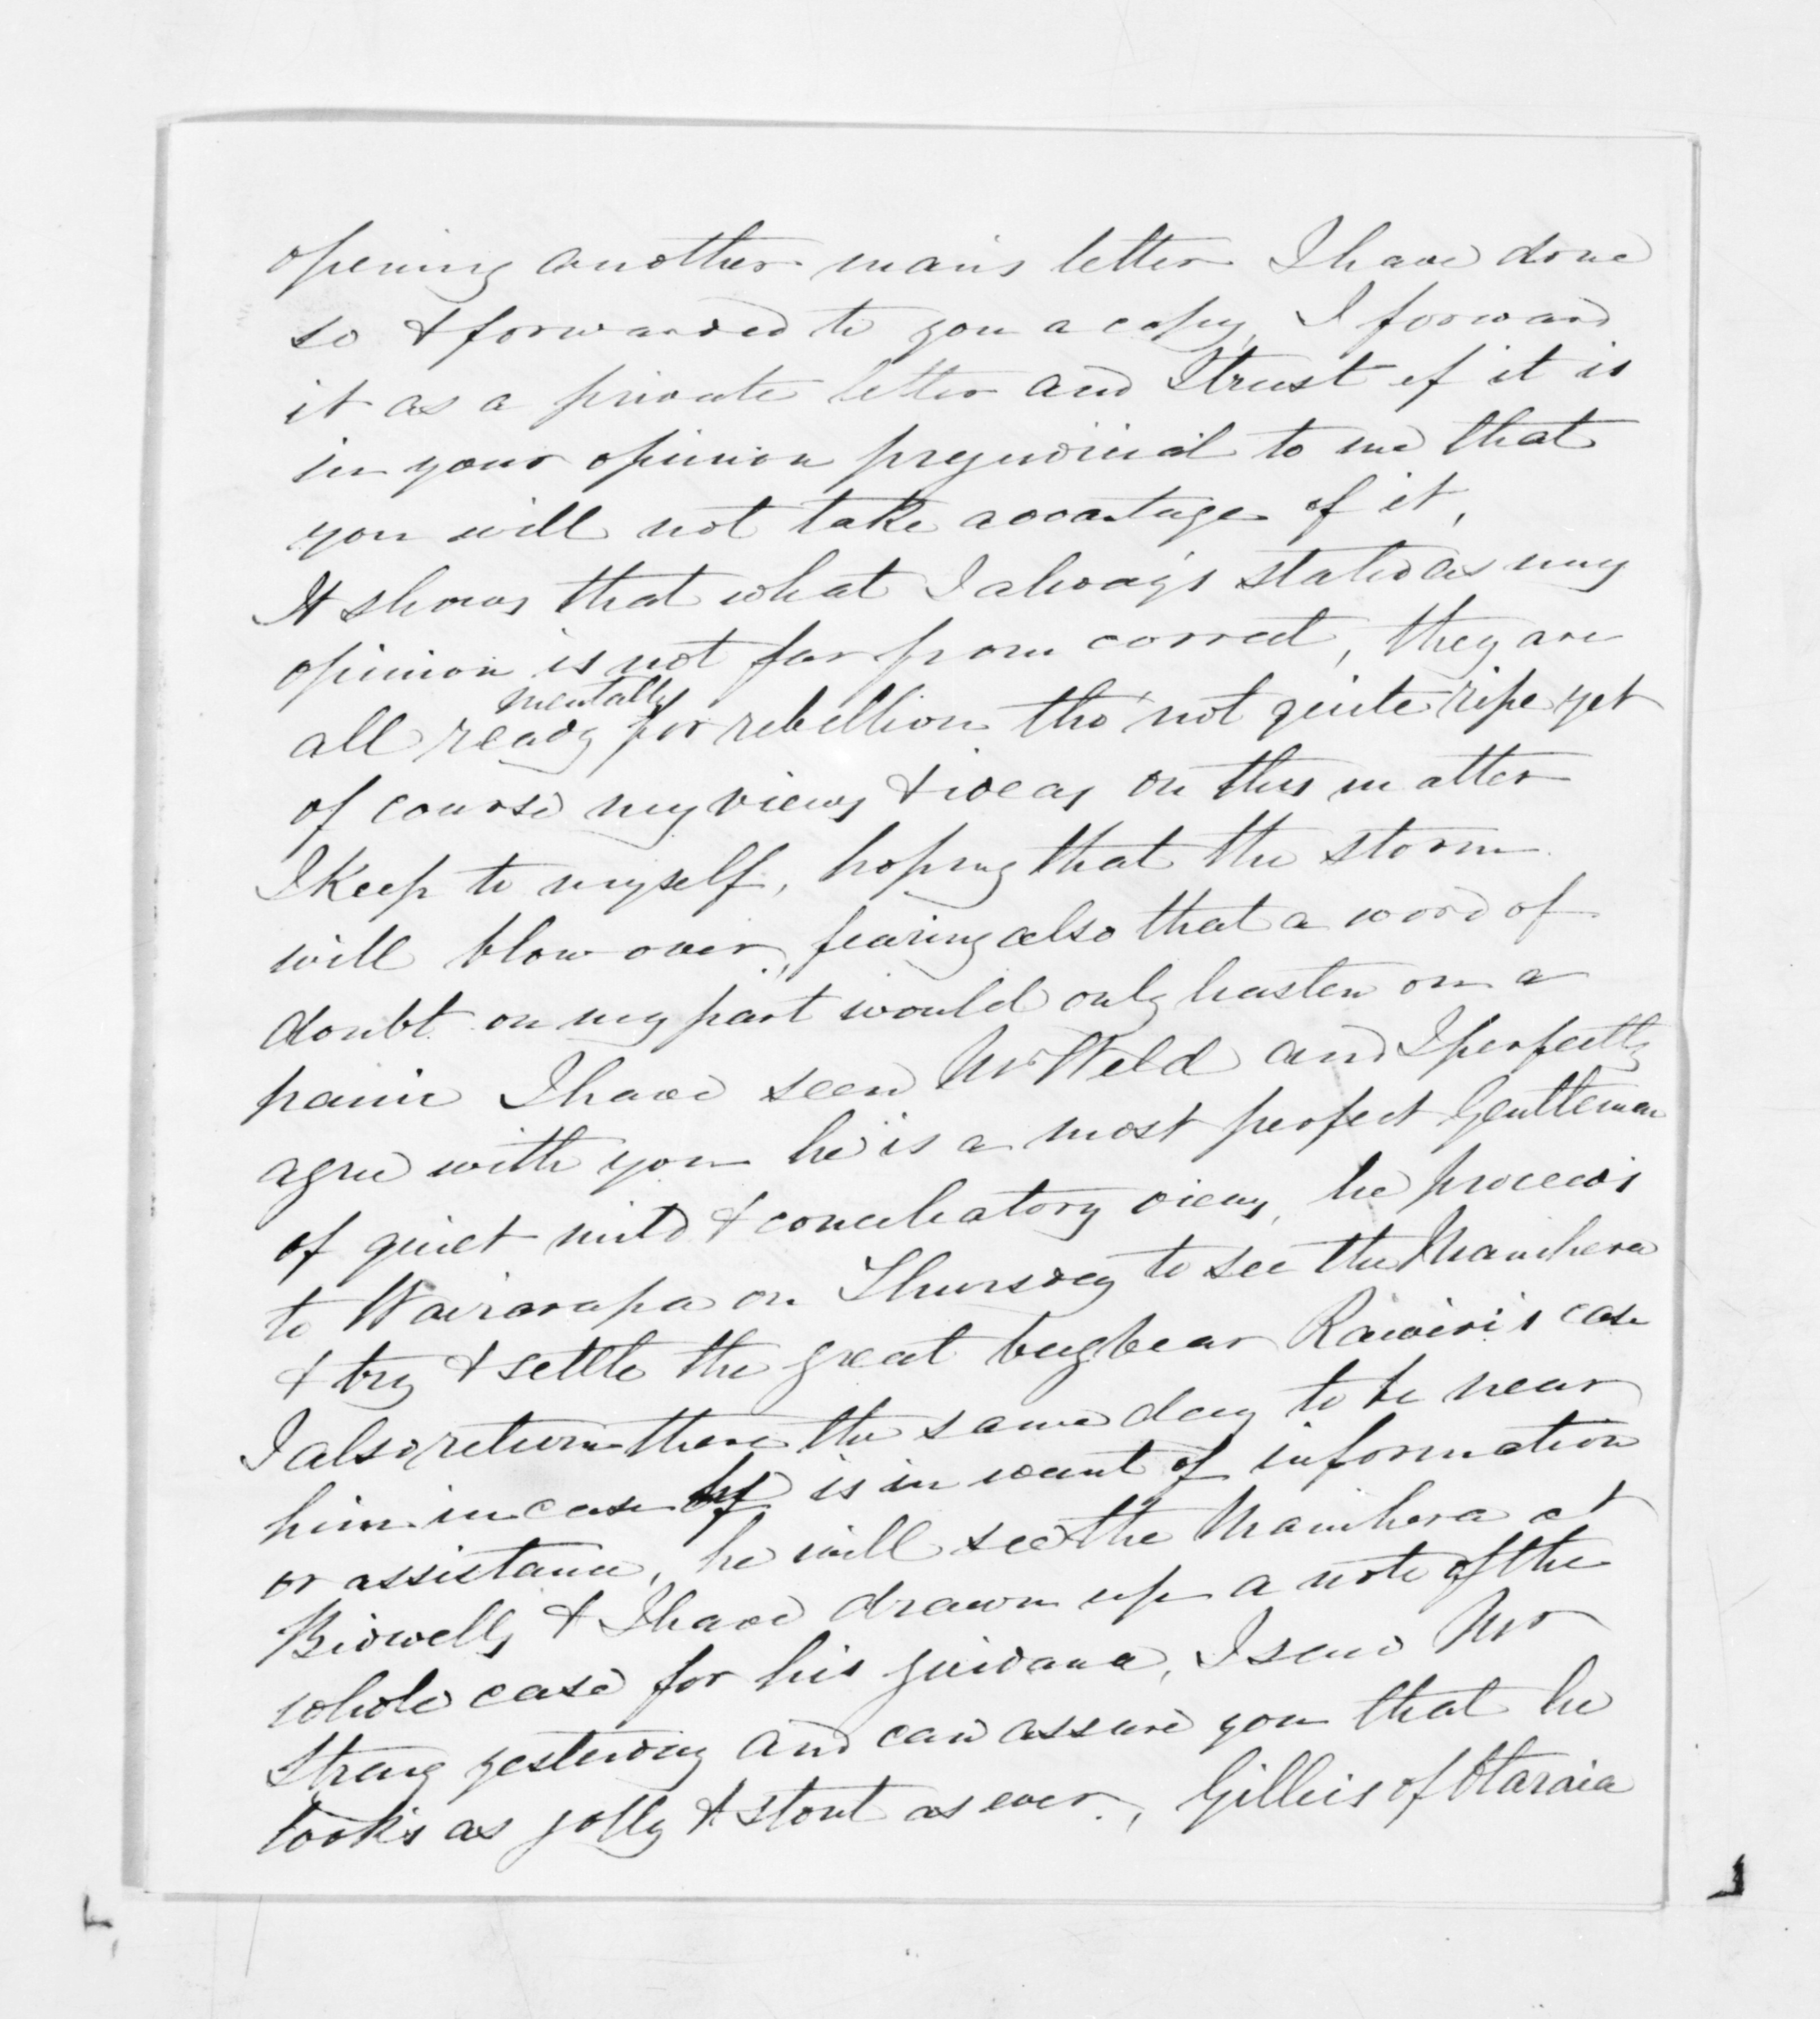 opening another man's letter I have done
so & forwarded to you a copy, I forward
it as a private letter and I trust if it is
in your opinion prejudicial to me that
you will not take advantage of it,
It shows that what I always stated as my
opinion is not far from correct, they are
mentally
all ready for rebellion tho' not quite ripe yet
of course my views & ideas on this matter
I Keep to myself, hoping that the storm
will blow over, fearing also that a word of
doubt on my part would only hasten on a
panic I have seen Mr Weld and I perfectly
agree with you he is a most perfect Gentleman
of quiet mild & conciliatory views, he proceeds
to Wairarapa on Thursday to see the Manihera
& try & settle the great bugbear Rawiri's case
I also return there the same day to be near
him in case he is in want of information
or assistance, he will see the Manihera at
Bidwells & I have drawn up a note of the
whole case for his guidance, I send Mr
Strang yesterday and can assure you that he
looks as jolly & stout as ever, Gillies of Otaraia